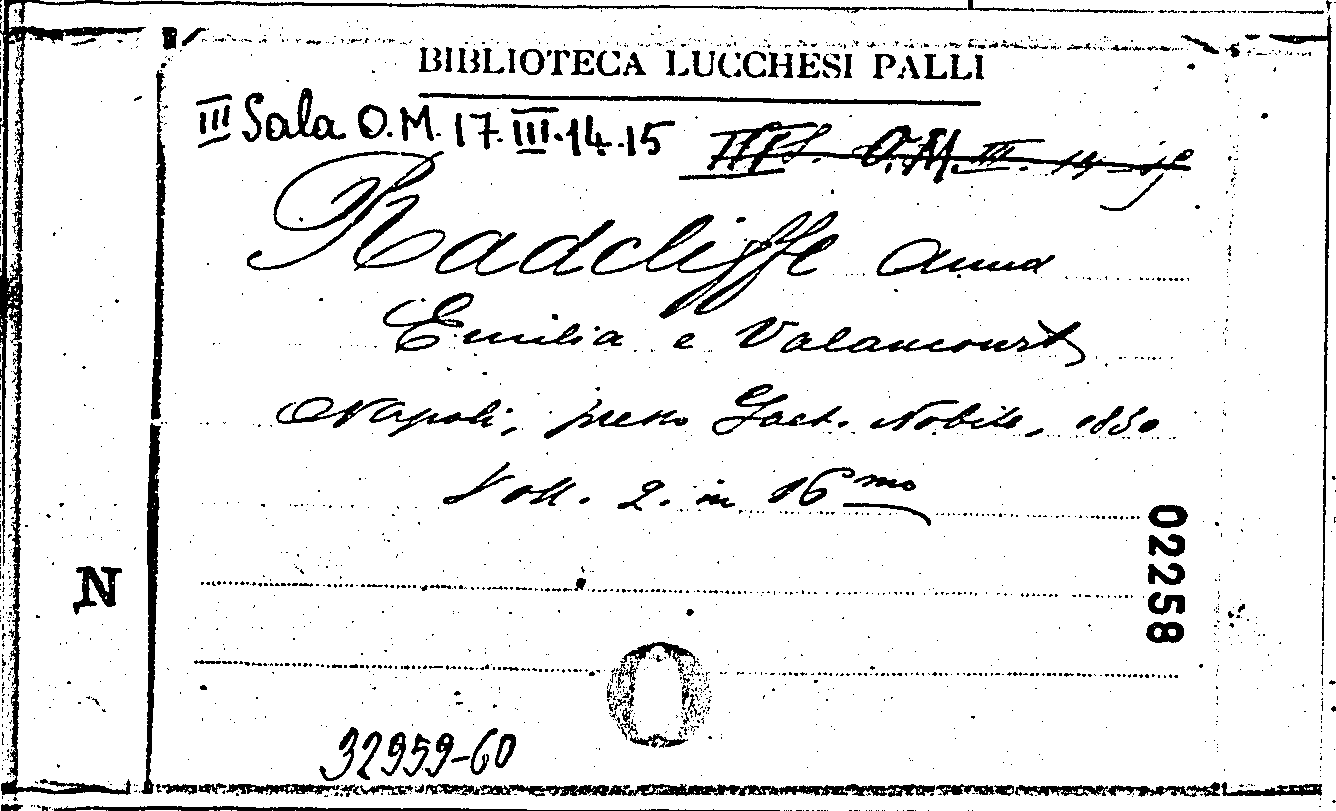 BIBLIOTECA LUCCHESI PALLI
III Sala O.M. 17. III. 14. 15 III S. O.M. III. 14-15
Radcliffe Anna
Emilia e Valancourt
Napoli, presso Gaet. Nobile, 1830
Voll. 2. in 16mo
02258
N
32959-60